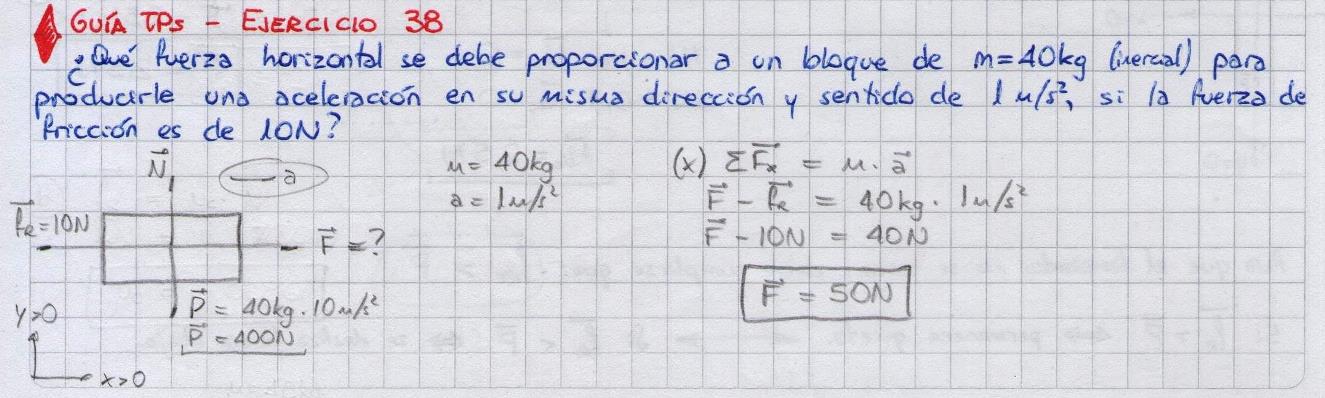 GUÍA TPs - EJERCICIO 38
¿Qué fuerza horizontal se debe proporcionar a un bloque de m=40kg (inercial) para
producirle una aceleración en su misma dirección y sentido de 1 m/s², si la fuerza de
fricción es de 10N?
N⃗
a
f⃗R=10N
F⃗=?
P⃗ = 40kg.10m/s²
P⃗ = 400N
y>0
x>0
m= 40kg
a= 1m/s²
(x) ΣF⃗x = m.a⃗
F⃗ - f⃗R = 40kg. 1m/s²
F⃗ - 10N = 40N
F⃗ = 50N